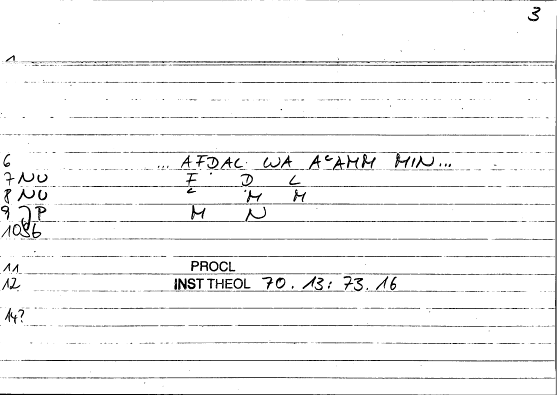 3
1
6 ... AFDAL WA AᶜAMM MIN...
7 NU F D L
8 NU ᶜ M M
9 JP M N
10 SB
11 PROCL
12 INST THEOL 70.13; 73.16
14?